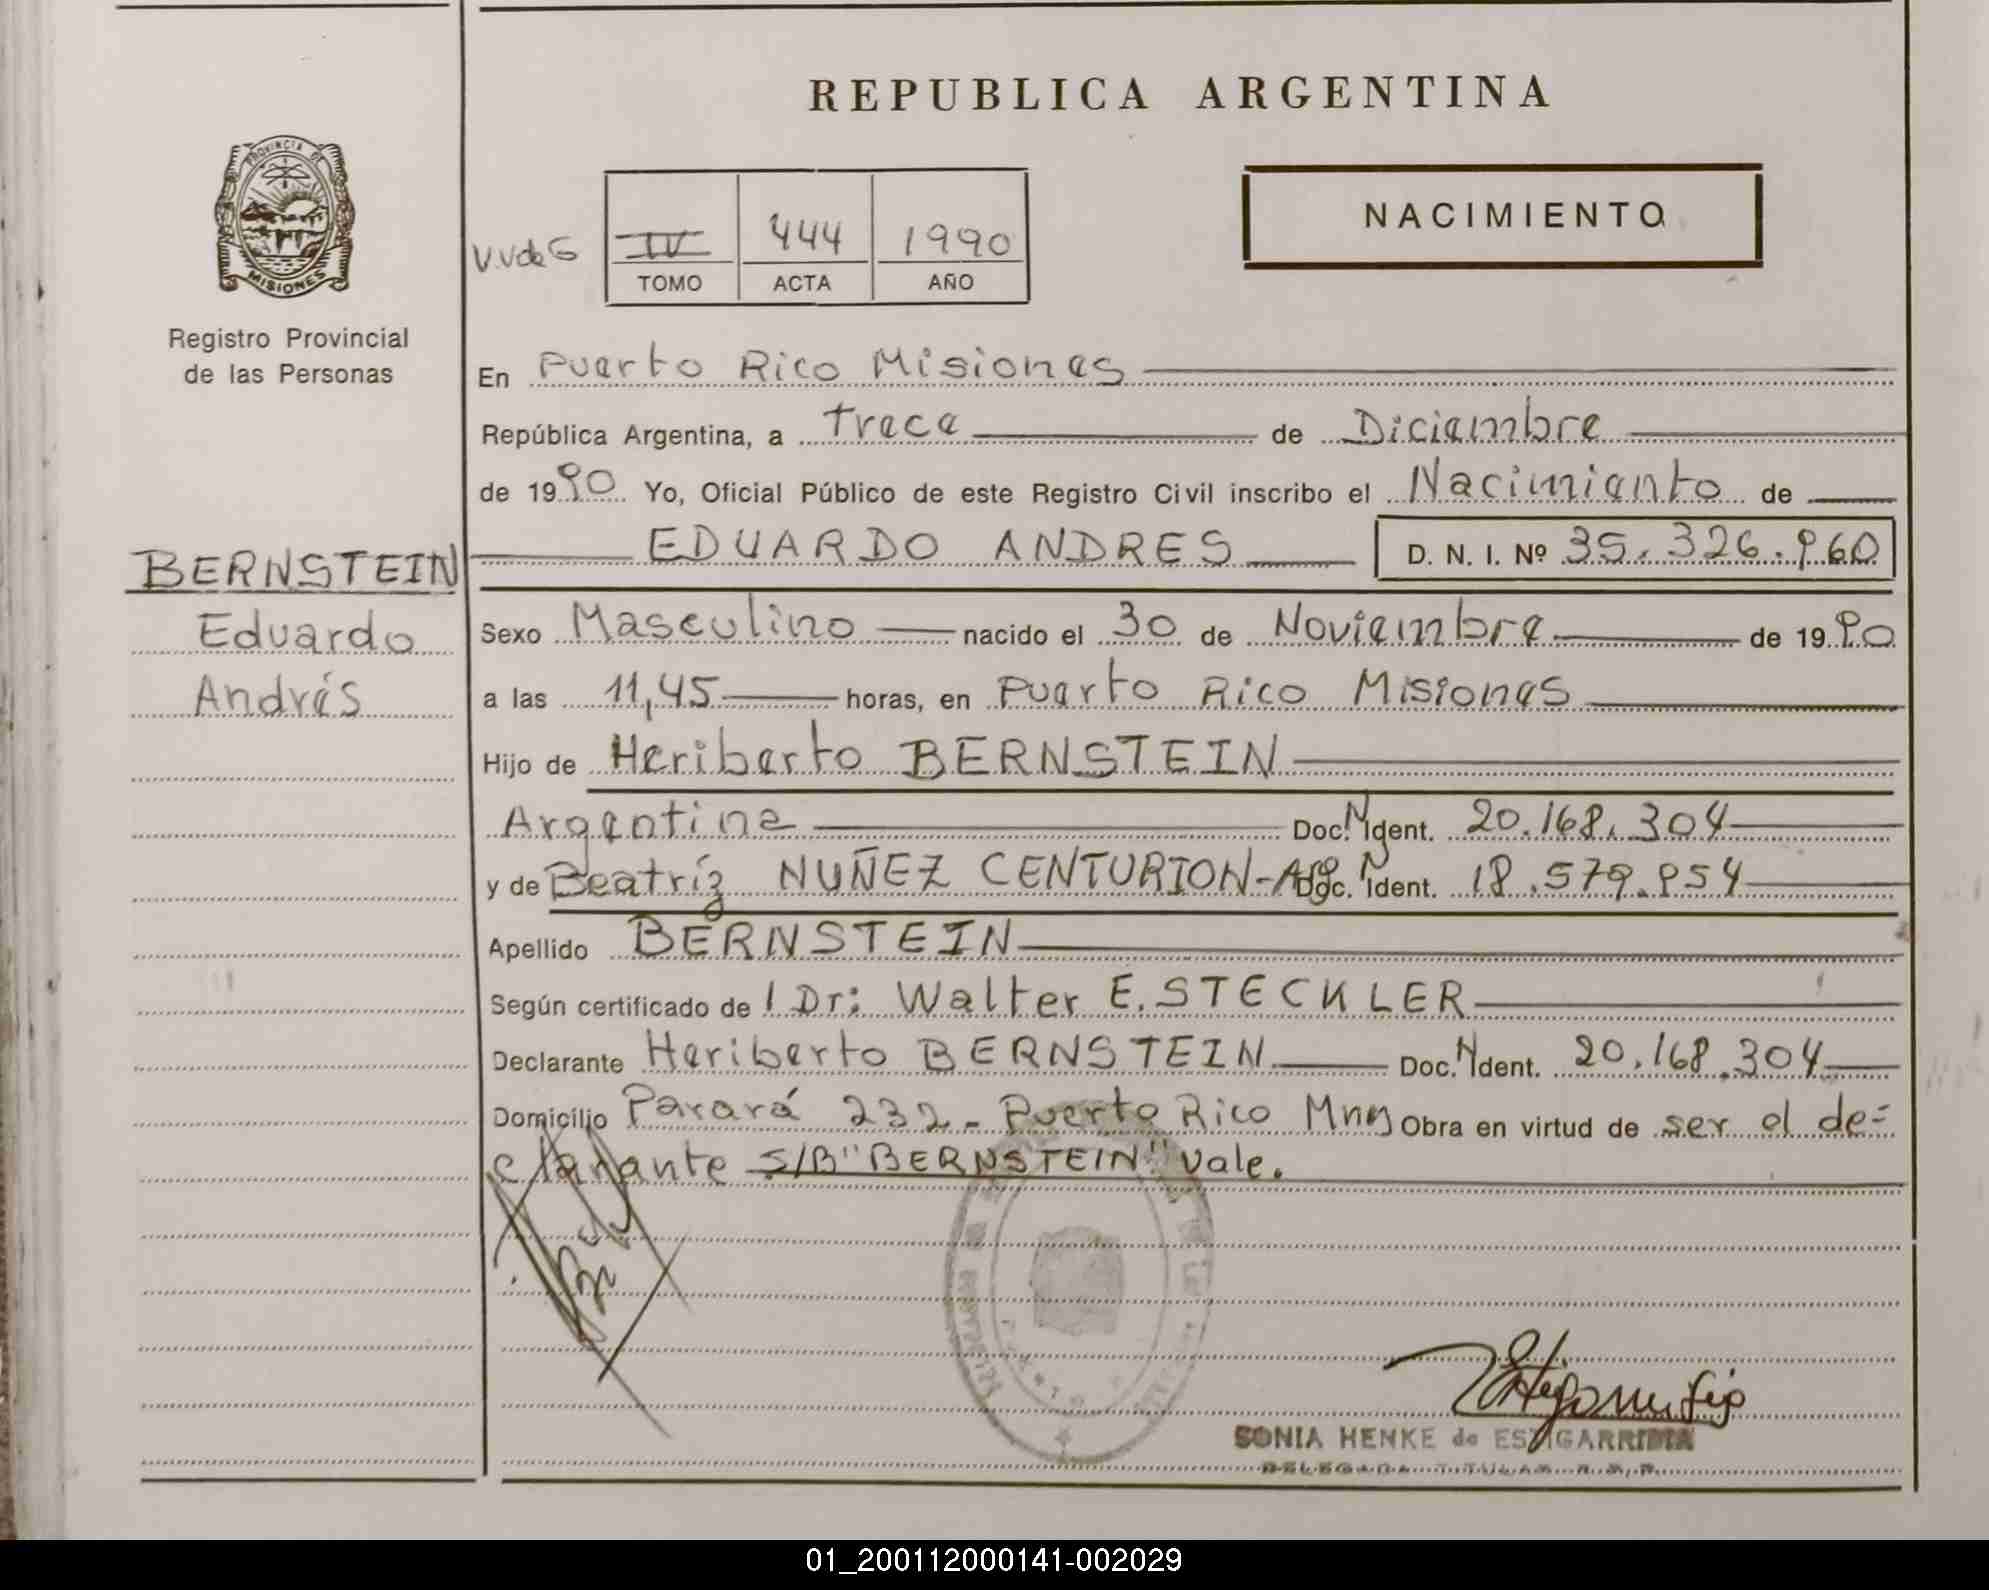 REPUBLICA ARGENTINA
PROVINCIA DE
MISIONES
Registro Provincial
de las Personas
NACIMIENTO
V.V de G
IV 444 1990
TOMO ACTA AÑO
En Puerto Rico Misiones
República Argentina, a trece de Diciembre
de 1990 Yo, Oficial Público de este Registro Civil inscribo el Nacimiento de
EDUARDO ANDRES D. N. I. Nº 35.326.960
BERNSTEIN
Eduardo
Andrés
Sexo Masculino nacido el 30 de Noviembre de 1990
a las 11,45 horas, en Puerto Rico Misiones
Hijo de Heriberto BERNSTEIN
Argentina Doc. N Ident. 20.168.304
y de Beatríz NUÑEZ CENTURION-Arg Doc. N Ident. 18.579.954
Apellido BERNSTEIN
Según certificado de l Dr: Walter E. STECKLER
Declarante Heriberto BERNSTEIN Doc. N Ident. 20.168.304
Domicilio Parará 232 - Puerto Rico Mnes Obra en virtud de ser el de=
clarante S/B "BERNSTEIN" vale.
SONIA HENKE de ESTIGARRIBIA
DELEGADA TITULAR R. P.
01_200112000141-002029